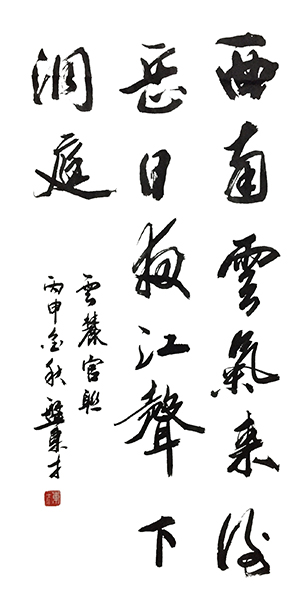 西南雲氣来衡
岳日夜江聲下
洞庭
雲麓宫联
丙申金秋